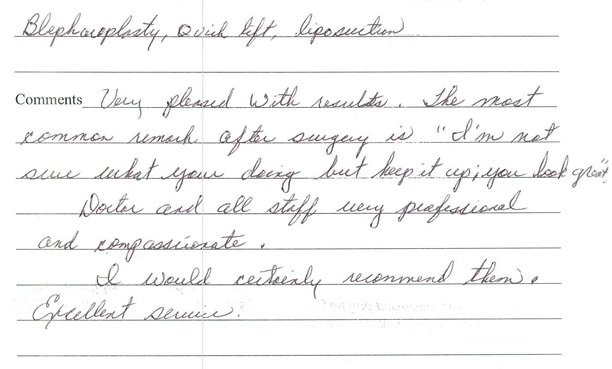 Blepharoplasty, Quick lift, liposuction
Comments Very pleased with results. The most
common remark after surgery is "I'm not
sure what your doing but keep it up; you look great"
Doctor and all staff very professional
and compassionate.
I would certainly recommend them.
Excellent service.